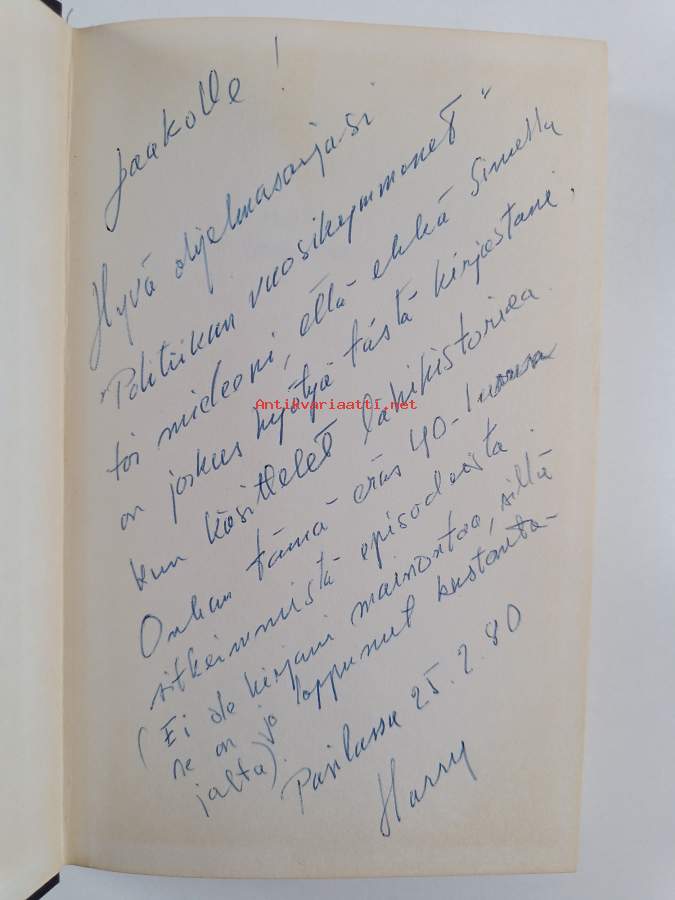 Jaakolle!
Hyvä ohjelmasarjasi
"Politiikan vuosikymmenet"
toi mieleeni, että ehkä Sinulla
on joskus hyötyä tästä kirjastani,
kun käsittelet lähihistoriaa.
Onhan tämä eräs 40-luvun
sitkeimmistä episodeista.
(Ei ole kirjani mainontaa, sillä
se on jo loppunut kustanta-
jalta).
Pasilassa 25.2.80
Harry
Antikvariaatti.net